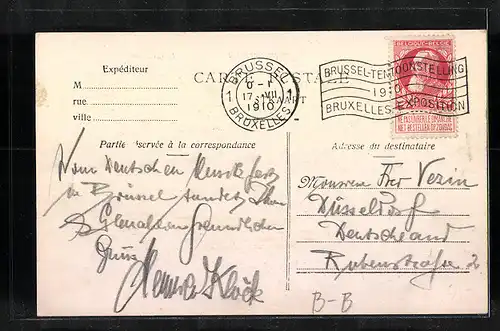 Expéditeur
M
rue
ville
CARTE POSTALE
POSTKAART
BRUSSEL
1 17 VII 1
1910
BRUXELLES
BRUSSEL-TENTOONSTELLING
1910
BRUXELLES-EXPOSITION
BELGIQUE-BELGIE
NE PAS LIVRER LE DIMANCHE
NIET BESTELLEN OP ZONDAG
Partie réservée à la correspondance
Adresse du destinataire
Vom Deutschen
in Brüssel sendet Ihnen
freundlichen
Gruss
Klöck
Monsieur Vezin
Düsseldorf
Deutschland
Rubenstrasse 2
B-B